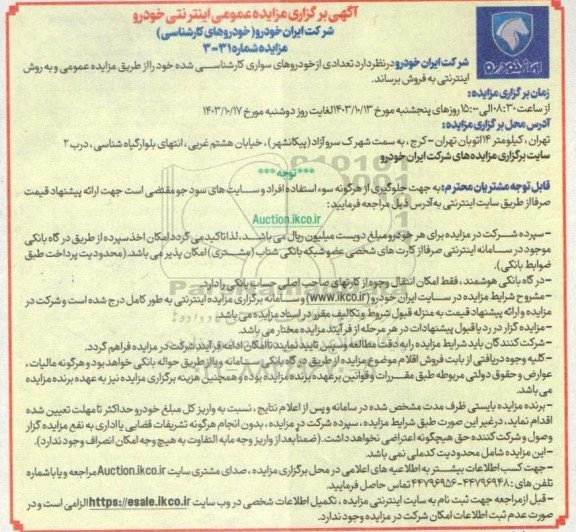 آگهی برگزاری مزایده عمومی اینترنتی خودرو
شرکت ایران خودرو (خودروهای کارشناسی)
مزایده شماره ۳۱-۳
ایران خودرو
شرکت ایران خودرو در نظر دارد تعدادی از خودروهای سواری کارشناسی شده خود را از طریق مزایده عمومی و به روش
اینترنتی به فروش برساند.
زمان برگزاری مزایده:
از ساعت ۰۸:۳۰ الی ۱۵:۰۰ روزهای پنجشنبه مورخ ۱۴۰۳/۱۰/۱۳ لغایت روز دوشنبه مورخ ۱۴۰۳/۱۰/۱۷
آدرس محل برگزاری مزایده:
تهران، کیلومتر ۱۴ اتوبان تهران - کرج، به سمت شهرک سروآزاد (پیکانشهر)، خیابان هشتم غربی، انتهای بلوار گیاه شناسی، درب ۲
سایت برگزاری مزایده های شرکت ایران خودرو
***توجه***
قابل توجه مشتریان محترم: به جهت جلوگیری از هرگونه سوء استفاده افراد و سایت های سودجو مقتضی است جهت ارائه پیشنهاد قیمت
صرفا از طریق سایت اینترنتی به آدرس ذیل مراجعه فرمایید:
Auction.ikco.ir
- سپرده شرکت در مزایده برای هر خودرو مبلغ دویست میلیون ریال می باشد، لذا تاکید می گردد امکان اخذ سپرده از طریق درگاه بانکی
موجود در سامانه اینترنتی صرفا از کارت های شخصی عضو شبکه بانکی شتاب (مشتری) امکان پذیر می باشد. (محدودیت پرداخت طبق
ضوابط بانکی).
- در گاه بانکی هوشمند، فقط امکان انتقال وجوه از کارتهای صاحب اصلی حساب بانکی را دارد.
- مشروح شرایط مزایده در سایت ایران خودرو (www.ikco.ir) و سامانه برگزاری مزایده اینترنتی به طور کامل درج شده است و شرکت در
مزایده و ارائه پیشنهاد قیمت به منزله قبول شروط و تکالیف مقرر در اسناد مزایده می باشد.
- مزایده گزار در رد یا قبول پیشنهادات در هر مرحله از فرآیند مزایده مختار می باشد.
- شرکت کنندگان باید شرایط مزایده را به دقت مطالعه و سپس تایید نمایند تا امکان ادامه فرآیند شرکت در مزایده فراهم گردد.
- کلیه وجوه دریافتی از بابت فروش اقلام موضوع مزایده از طریق درگاه بانکی سامانه و یا از طریق حواله بانکی خواهد بود و هرگونه مالیات،
عوارض و حقوق دولتی مربوطه طبق مقررات و قوانین بر عهده برنده مزایده بوده و همچنین هزینه برگزاری مزایده نیز به عهده برنده مزایده
می باشد.
- برنده مزایده بایستی ظرف مدت مشخص شده در سامانه و پس از اعلام نتایج، نسبت به واریز کل مبلغ خودرو حداکثر تا مهلت تعیین شده
اقدام نماید، در غیر این صورت طبق شرایط مزایده، سپرده شرکت در مزایده، بدون انجام هرگونه تشریفات قضایی یا اداری به نفع مزایده گزار
وصول و شرکت کننده حق هیچگونه اعتراضی نخواهد داشت. (ضمنا بعد از واریز وجه مابه التفاوت به هیچ وجه امکان انصراف وجود ندارد).
- این مزایده شامل محدودیت کدملی نمی باشد.
- جهت کسب اطلاعات بیشتر به اطلاعیه های اعلامی در محل برگزاری مزایده، صدای مشتری سایت Auction.ikco.ir مراجعه و یا با شماره
تلفن های: ۴۴۷۹۶۹۴۸-۴۴۷۹۶۹۵۶ تماس حاصل فرمایید.
- قبل از مراجعه جهت ثبت نام به سایت اینترنتی مزایده، تکمیل اطلاعات شخصی در وب سایت https://esale.ikco.ir الزامی است و در
صورت عدم ثبت اطلاعات امکان شرکت در مزایده وجود ندارد.